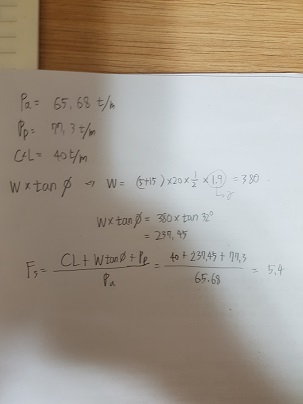 Pa = 65.68 t/m
Pp = 77.3 t/m
C×L = 40 t/m
W×tanφ ⇒ W = (5+15)×20×1/2×1.9 = 380
W×tanφ = 380×tan32°
= 237.45
Fs = (CL + Wtanφ + Pp)/Pa = (40 + 237.45 + 77.3)/65.68 = 5.4